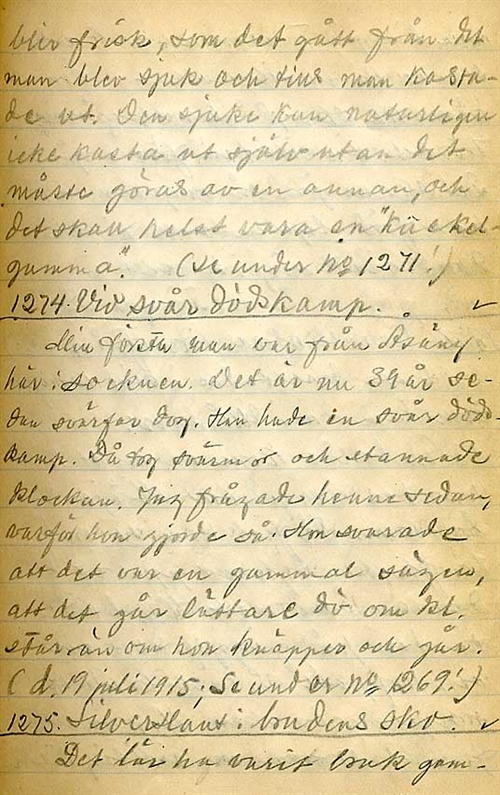 blir frisk, som det gått från det
man blev sjuk och tills man kasta-
de ut. Den sjuke kan naturligen
icke kasta ut själv utan det
måste göras av en annan, och
det skall helst vara en "käckel-
gumma". (Se under No 1271!)
1274. Vid svår dödskamp.
Min första man var från Åsäng
här i socknen. Det är nu 39 år se-
dan svärfar dog. Han hade en svår döds-
kamp. Då tog svärmor och stannade
klockan. Jag frågade henne sedan,
varför hon gjorde så. Hon svarade
att det var en gammal sägen,
att det går lättare dö om kl.
står än om hon knäpper och går.
(d. 19 juli 1915; Se under No 1269!)
1275. Silverslant i brudens sko.
Det lär ha varit bruk gam-